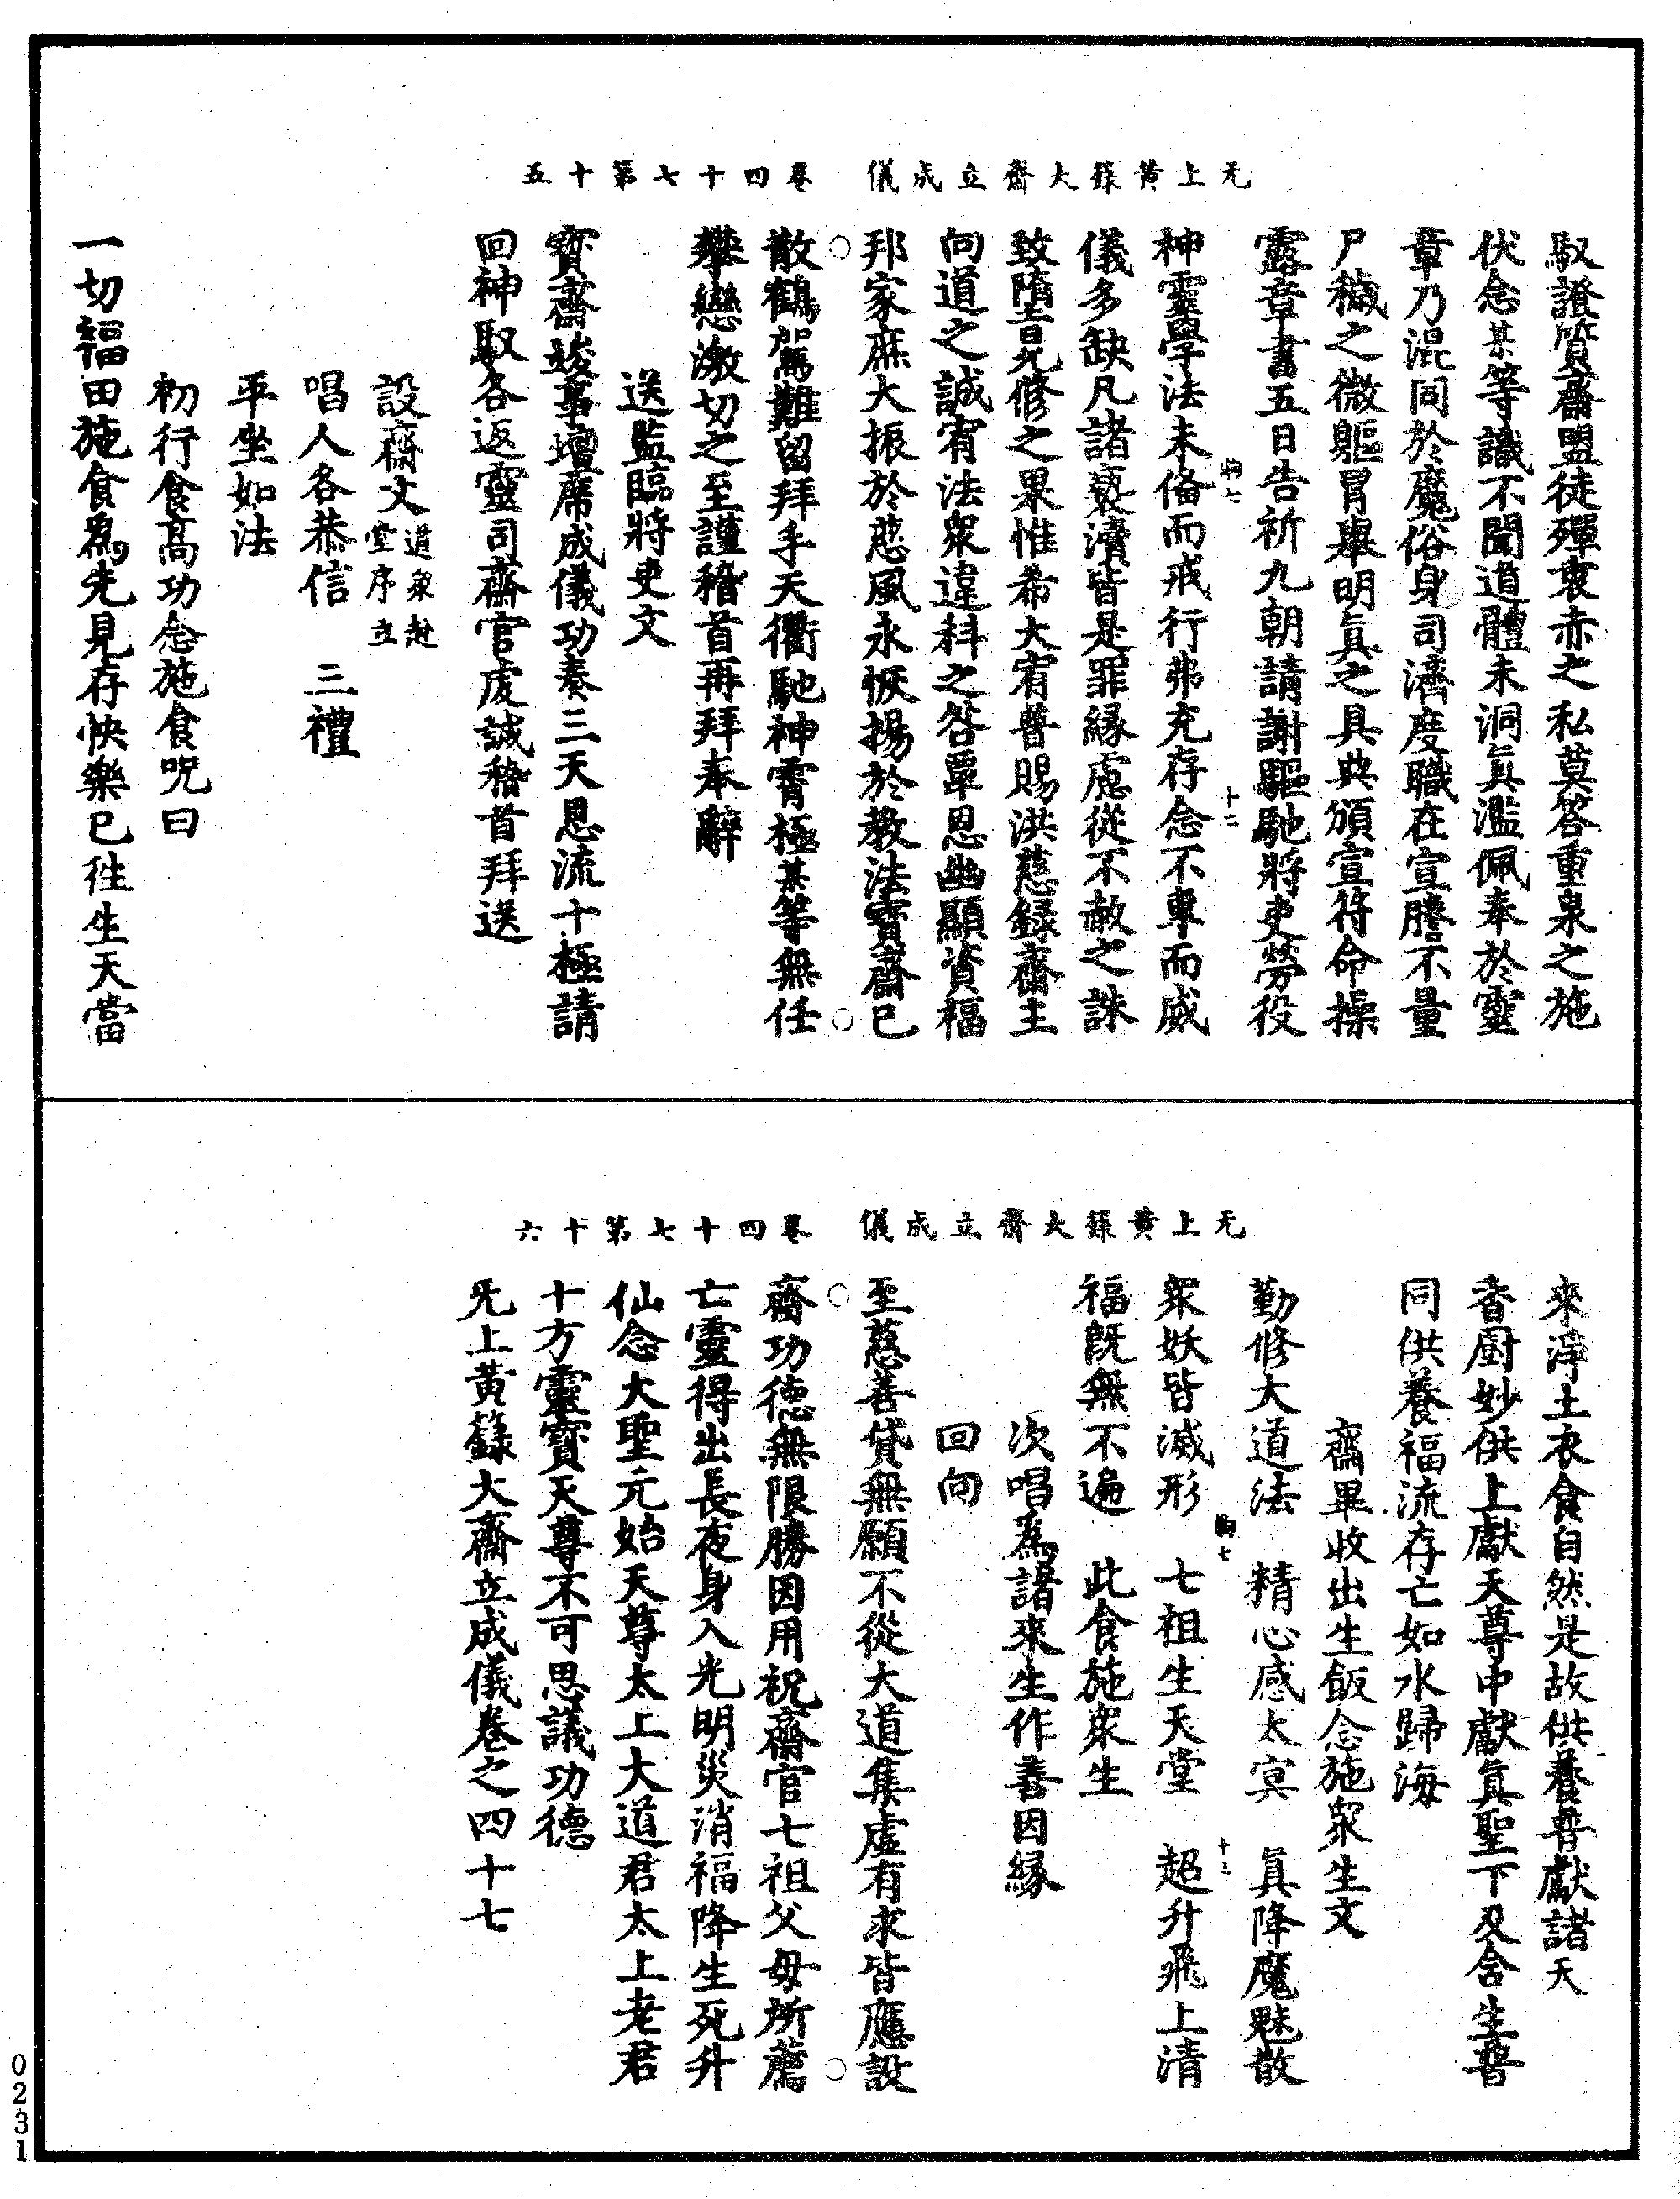 无上黃籙大齋立成儀　卷四十七第十五
馭證質齋盟徒殫衷赤之私莫答重泉之施
伏念某等識不聞道體未洞真濫佩奉於靈
章乃混同於魔俗身司濟度職在宣謄不量
尸穢之微軀冒舉明真之具典頒宣符命操
露章書五日告祈九朝請謝驅馳將吏勞役
神靈學法未俻而戒行弗充存念不專而威
儀多缺凡諸褻瀆皆是罪緣慮從不赦之誅
致墮見修之果惟希大宥普賜洪慈録齋主
向道之誠宥法衆違科之咎覃恩幽顯資福
邦家庶大振於慈風永恢揚於教法寶齋已
散鶴駕難留拜手天衢馳神霄極某等無任
攀戀激切之至謹稽首再拜奉辭
送監臨將吏文
寶齋竣事壇席成儀功奏三天恩流十極請
回神馭各返靈司齋官虔誠稽首拜送
設齋文道衆赴堂序立
唱人各恭信　三禮
平坐如法
初行食高功念施食呪曰
一切福田施食爲先見存快樂已徃生天當
无上黃籙大齋立成儀　卷四十七第十六
來淨土衣食自然是故供養普獻諸天
香厨妙供上獻天尊中獻真聖下及含生普
同供養福流存亡如水歸海
齋畢收出生飯念施衆生文
勤修大道法　精心感太冥　真降魔魅散
衆妖皆滅形　七祖生天堂　超升飛上清
福既無不遍　此食施衆生
次唱爲諸來生作善因緣
回向
至慈善貸無願不從大道集虛有求皆應設
齋功德無限勝因用祝齋官七祖父母所薦
亡靈得出長夜身入光明災消福降生死升
仙念大聖元始天尊太上大道君太上老君
十方靈寶天尊不可思議功德
无上黃籙大齋立成儀卷之四十七
0231